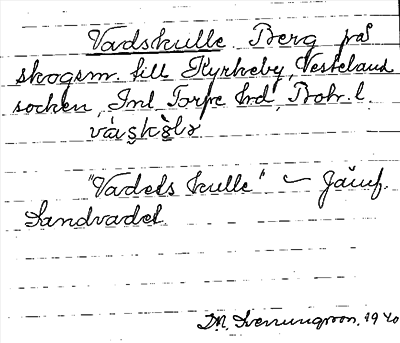 Vadskulle Berg på
skogsm. till Kyrkeby, Vesteland
socken, Inl. Torpe hd, Boh. l.
"Vadets kulle" ‒ Jämf.
Sandvadet
D.N. Svenungsson. 1940